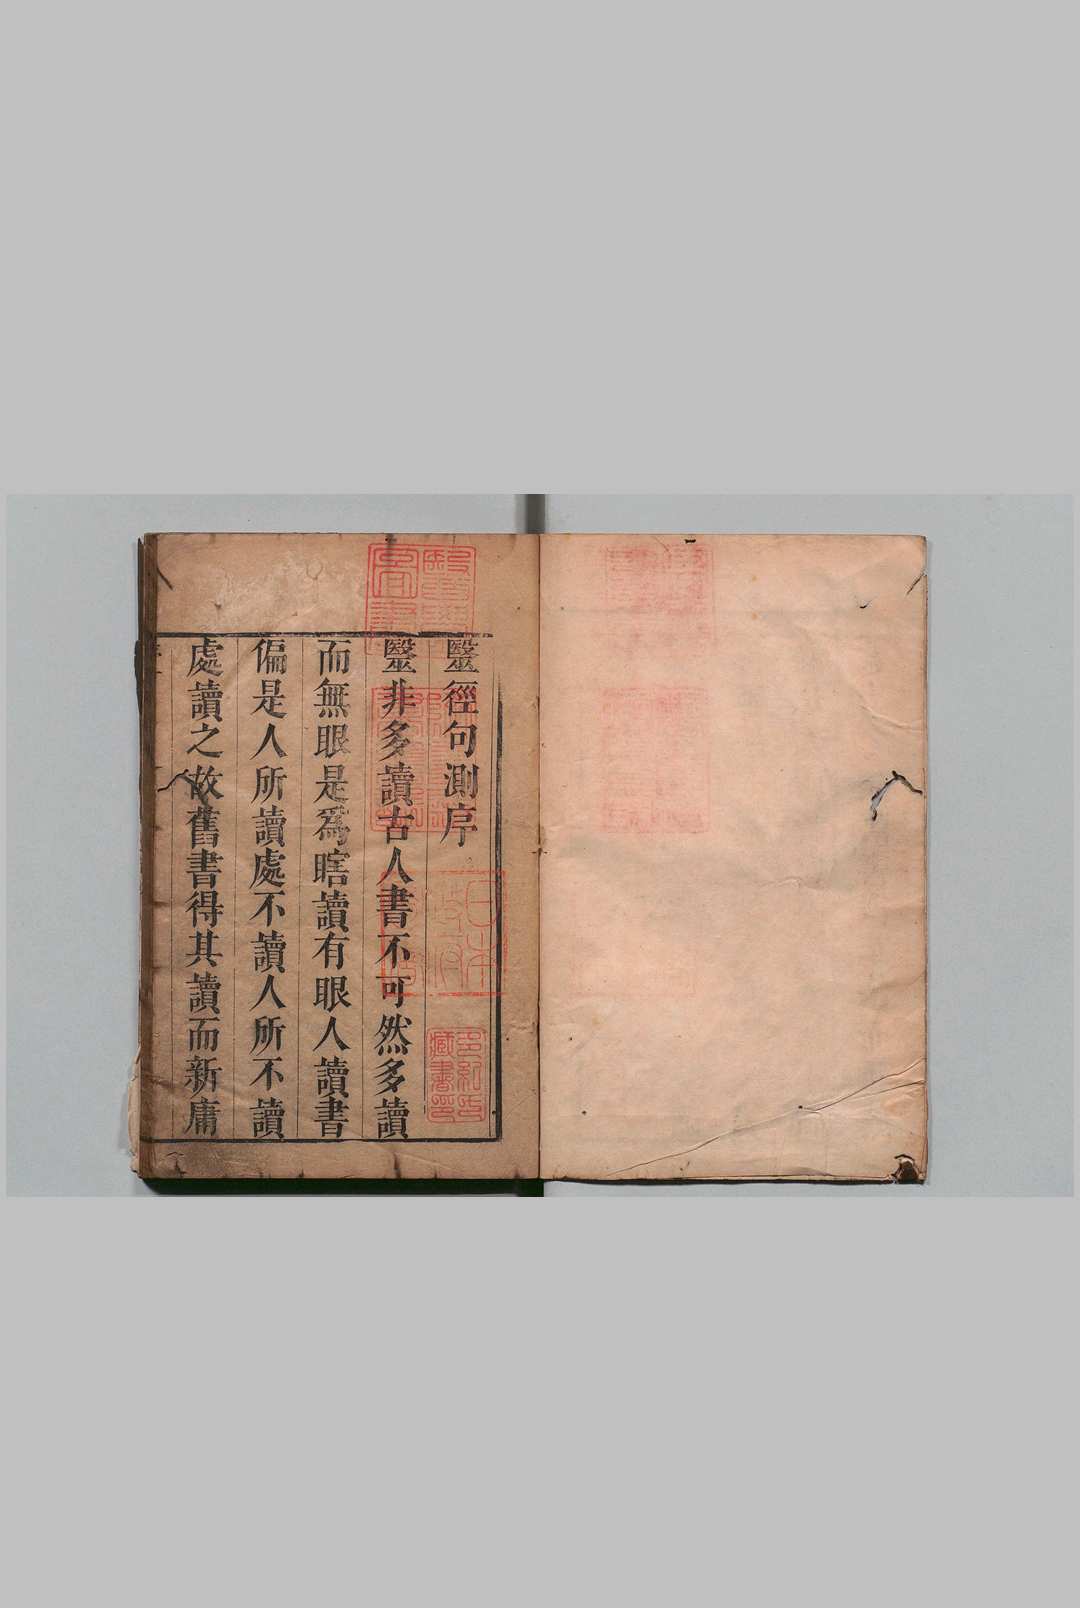 毉徑句測序
毉非多讀古人書不可然多讀
而無眼是爲瞎讀有眼人讀書
偏是人所讀處不讀人所不讀
處讀之故舊書得其讀而新庸